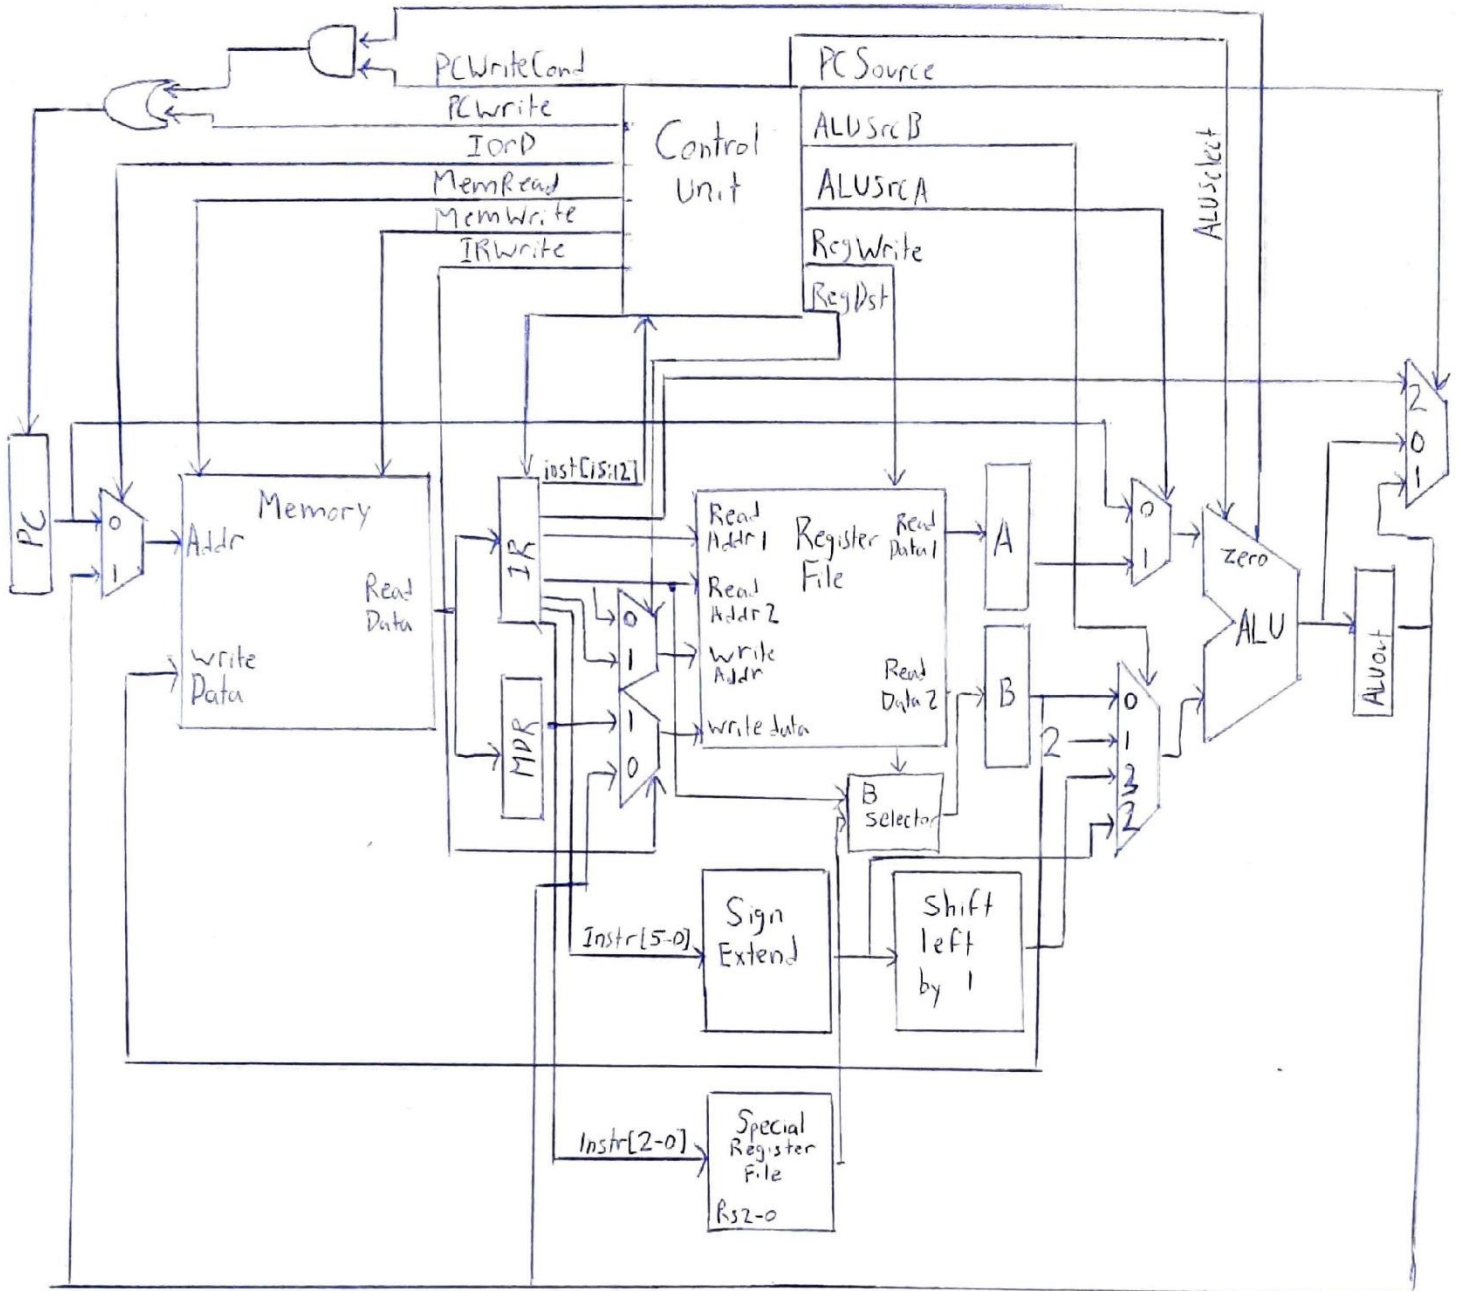 PCWriteCond
PCWrite
IorD
MemRead
MemWrite
IRWrite
Control
Unit
PCSource
ALUSrcB
ALUSrcA
RegWrite
RegDst
ALUSelect
PC
0
1
Memory
Addr
Read
Data
Write
Data
inst[15:12]
IR
MDR
0
1
1
0
Read
Addr1
Read
Addr2
Write
Addr
write data
Register
File
Read
Data1
Read
Data2
A
B
B
Selector
0
1
2
0
1
3
2
zero
ALU
ALUout
2
0
1
Instr[5-0]
Sign
Extend
Shift
left
by 1
Instr[2-0]
Special
Register
File
Rs2-0